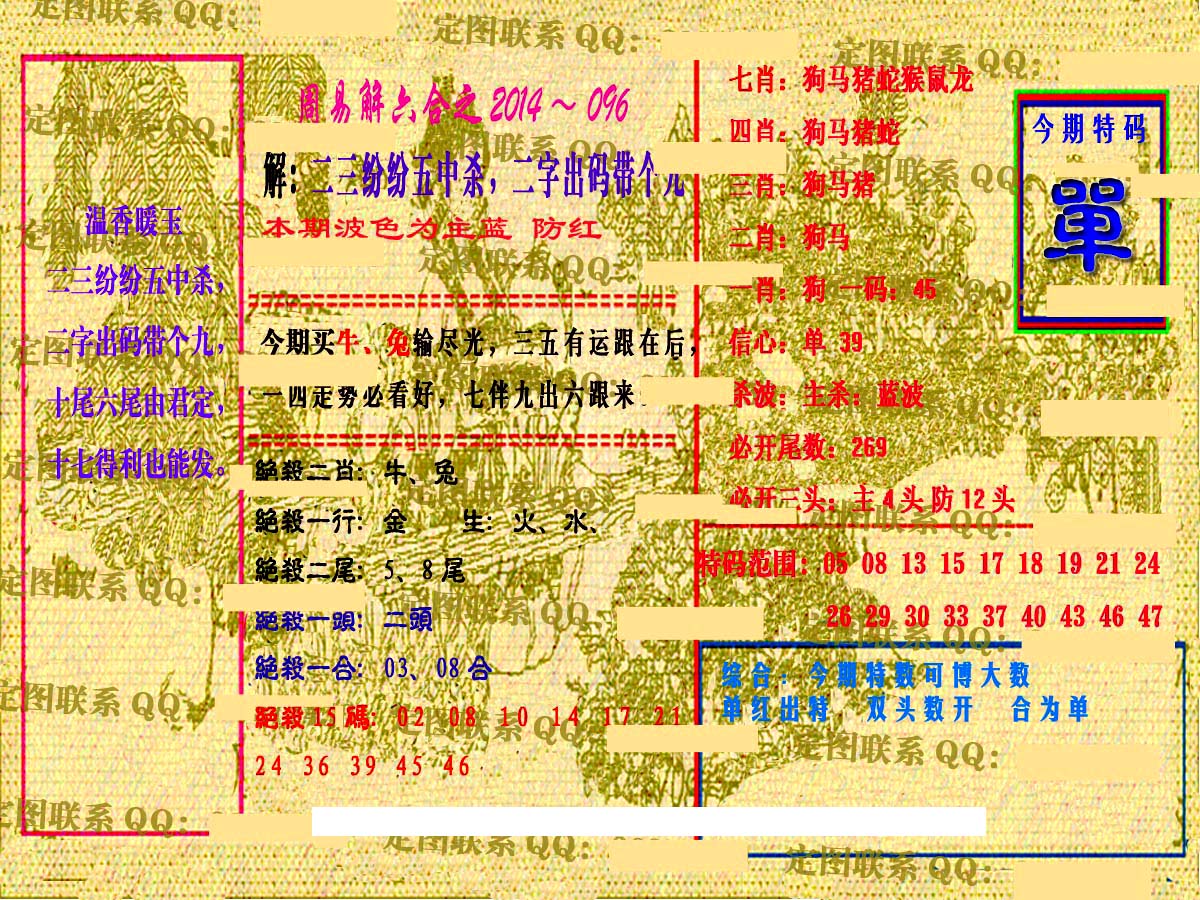 周易解六合之 2014 ~ 096
解：二三纷纷五中杀，二字出码带个九
本期波色为主蓝 防红
温香暖玉
二三纷纷五中杀，
二字出码带个九，
十尾六尾由君定，
十七得利也能发。
今期买牛、兔输尽光，三五有运跟在后，
一四走势必看好，七伴九出六跟来
絕殺二肖：牛、兔
絕殺一行：金 生：火、水、
絕殺二尾：5、8 尾
絕殺一頭：二頭
絕殺一合：03、08 合
絕殺 15 碼：02 08 10 14 17 21
24 36 39 45 46
七肖：狗马猪蛇猴鼠龙
四肖：狗马猪蛇
三肖：狗马猪
二肖：狗马
一肖：狗 一码：45
信心：单 39
杀波：主杀：蓝波
必开尾数：269
必开三头：主 4 头 防 12 头
今期特码
單
特码范围：05 08 13 15 17 18 19 21 24
26 29 30 33 37 40 43 46 47
综合：今期特数可博大数
单红出特 双头数开 合为单
定图联系 QQ：
定图联系 QQ：
定图联系 QQ：
定图联系 QQ：
定图联系 QQ：
定图联系 QQ：
定图联系 QQ：
定图联系 QQ：
定图联系 QQ：
定图联系 QQ：